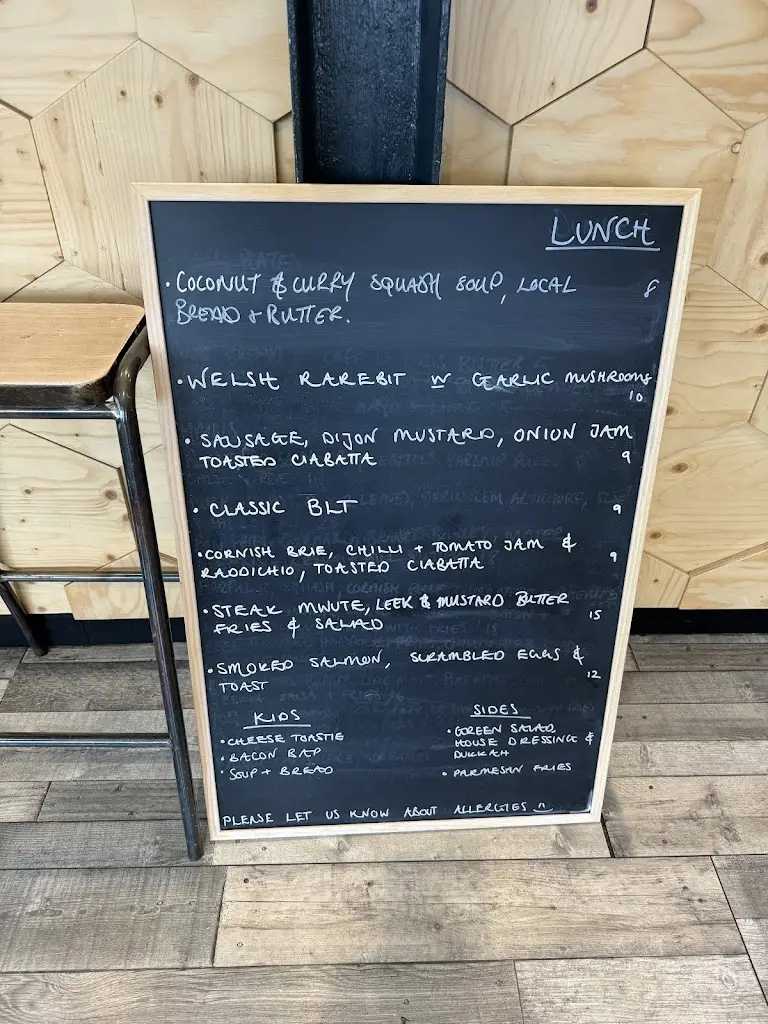 LUNCH
• COCONUT & CURRY SQUASH SOUP, LOCAL 8
BREAD + BUTTER.
• WELSH RAREBIT W GARLIC MUSHROOMS
10
• SAUSAGE, DIJON MUSTARD, ONION JAM
TOASTED CIABATTA 9
• CLASSIC BLT 9
• CORNISH BRIE, CHILLI + TOMATO JAM &
RADDICHIO, TOASTED CIABATTA 9
• STEAK MINUTE, LEEK & MUSTARD BUTTER
FRIES & SALAD 15
• SMOKED SALMON, SCRAMBLED EGGS &
TOAST 12
KIDS
• CHEESE TOASTIE
• BACON BAP
• SOUP + BREAD
SIDES
• GREEN SALAD,
HOUSE DRESSING &
DUKKAH
• PARMESAN FRIES
PLEASE LET US KNOW ABOUT ALLERGIES